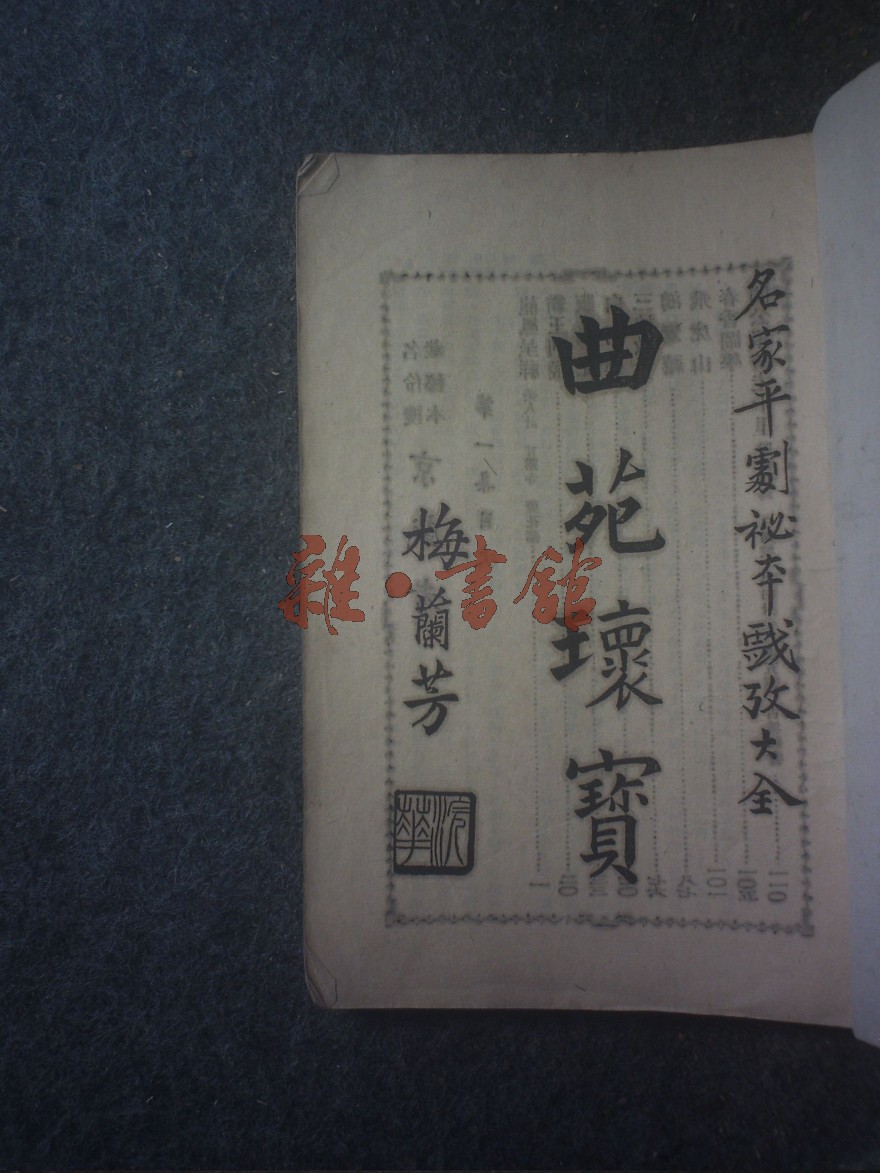 名家平劇祕本戲攷大全
曲苑瓌寶
梅蘭芳
浣華
雜·書館